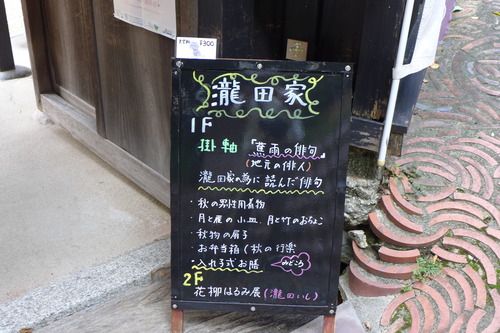 ¥300
瀧田家
1F
掛軸 「蕉雨の俳句」
(地元の俳人)
瀧田家の為に読んだ俳句
・秋の男性用着物
・月と雁の小皿、月と竹のおちょこ
・秋物の扇子
お弁当箱(秋の行楽
・入れ子式お膳 みどころ
2F
花柳はるみ展(瀧田いし)